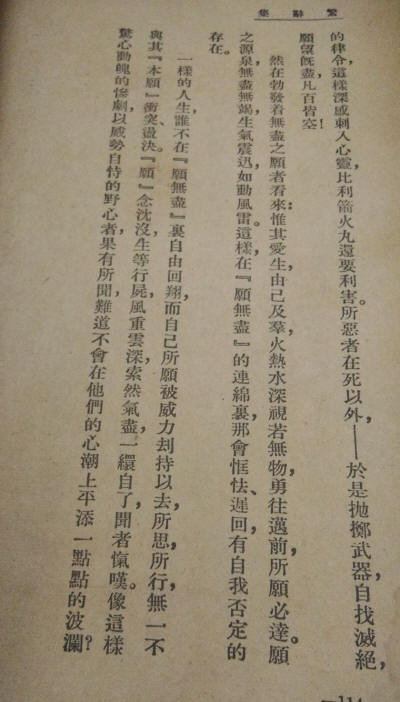 繁辭集
的律令，這樣深感刺人心靈，比利箭火丸還要利害。所惡者在死以外，——於是抛擲武器，自找滅絕，
願望既盡，凡百皆空！
然在勃發着無盡之願者看來：惟其愛生，由己及羣，火熱水深，視若無物，勇往邁前，所願必達。願
之源泉，無盡無竭，生氣震迅，如動風雷。這樣，在『願無盡』的連綿裏，那會恇怯、遲回，有自我否定的
存在。
一樣的人生，誰不在『願無盡』裏自由回翔，而自己所願被威力刦持以去，所思，所行，無一不
與其『本願』衝突、盪決。『願』念沈沒，生等行屍，風重雲深，索然氣盡，一繯自了，聞者愾嘆。像這樣
驚心動魄的慘劇，以威勢自恃的野心者果有所聞，難道不會在他們的心潮上平添一點點的波瀾？